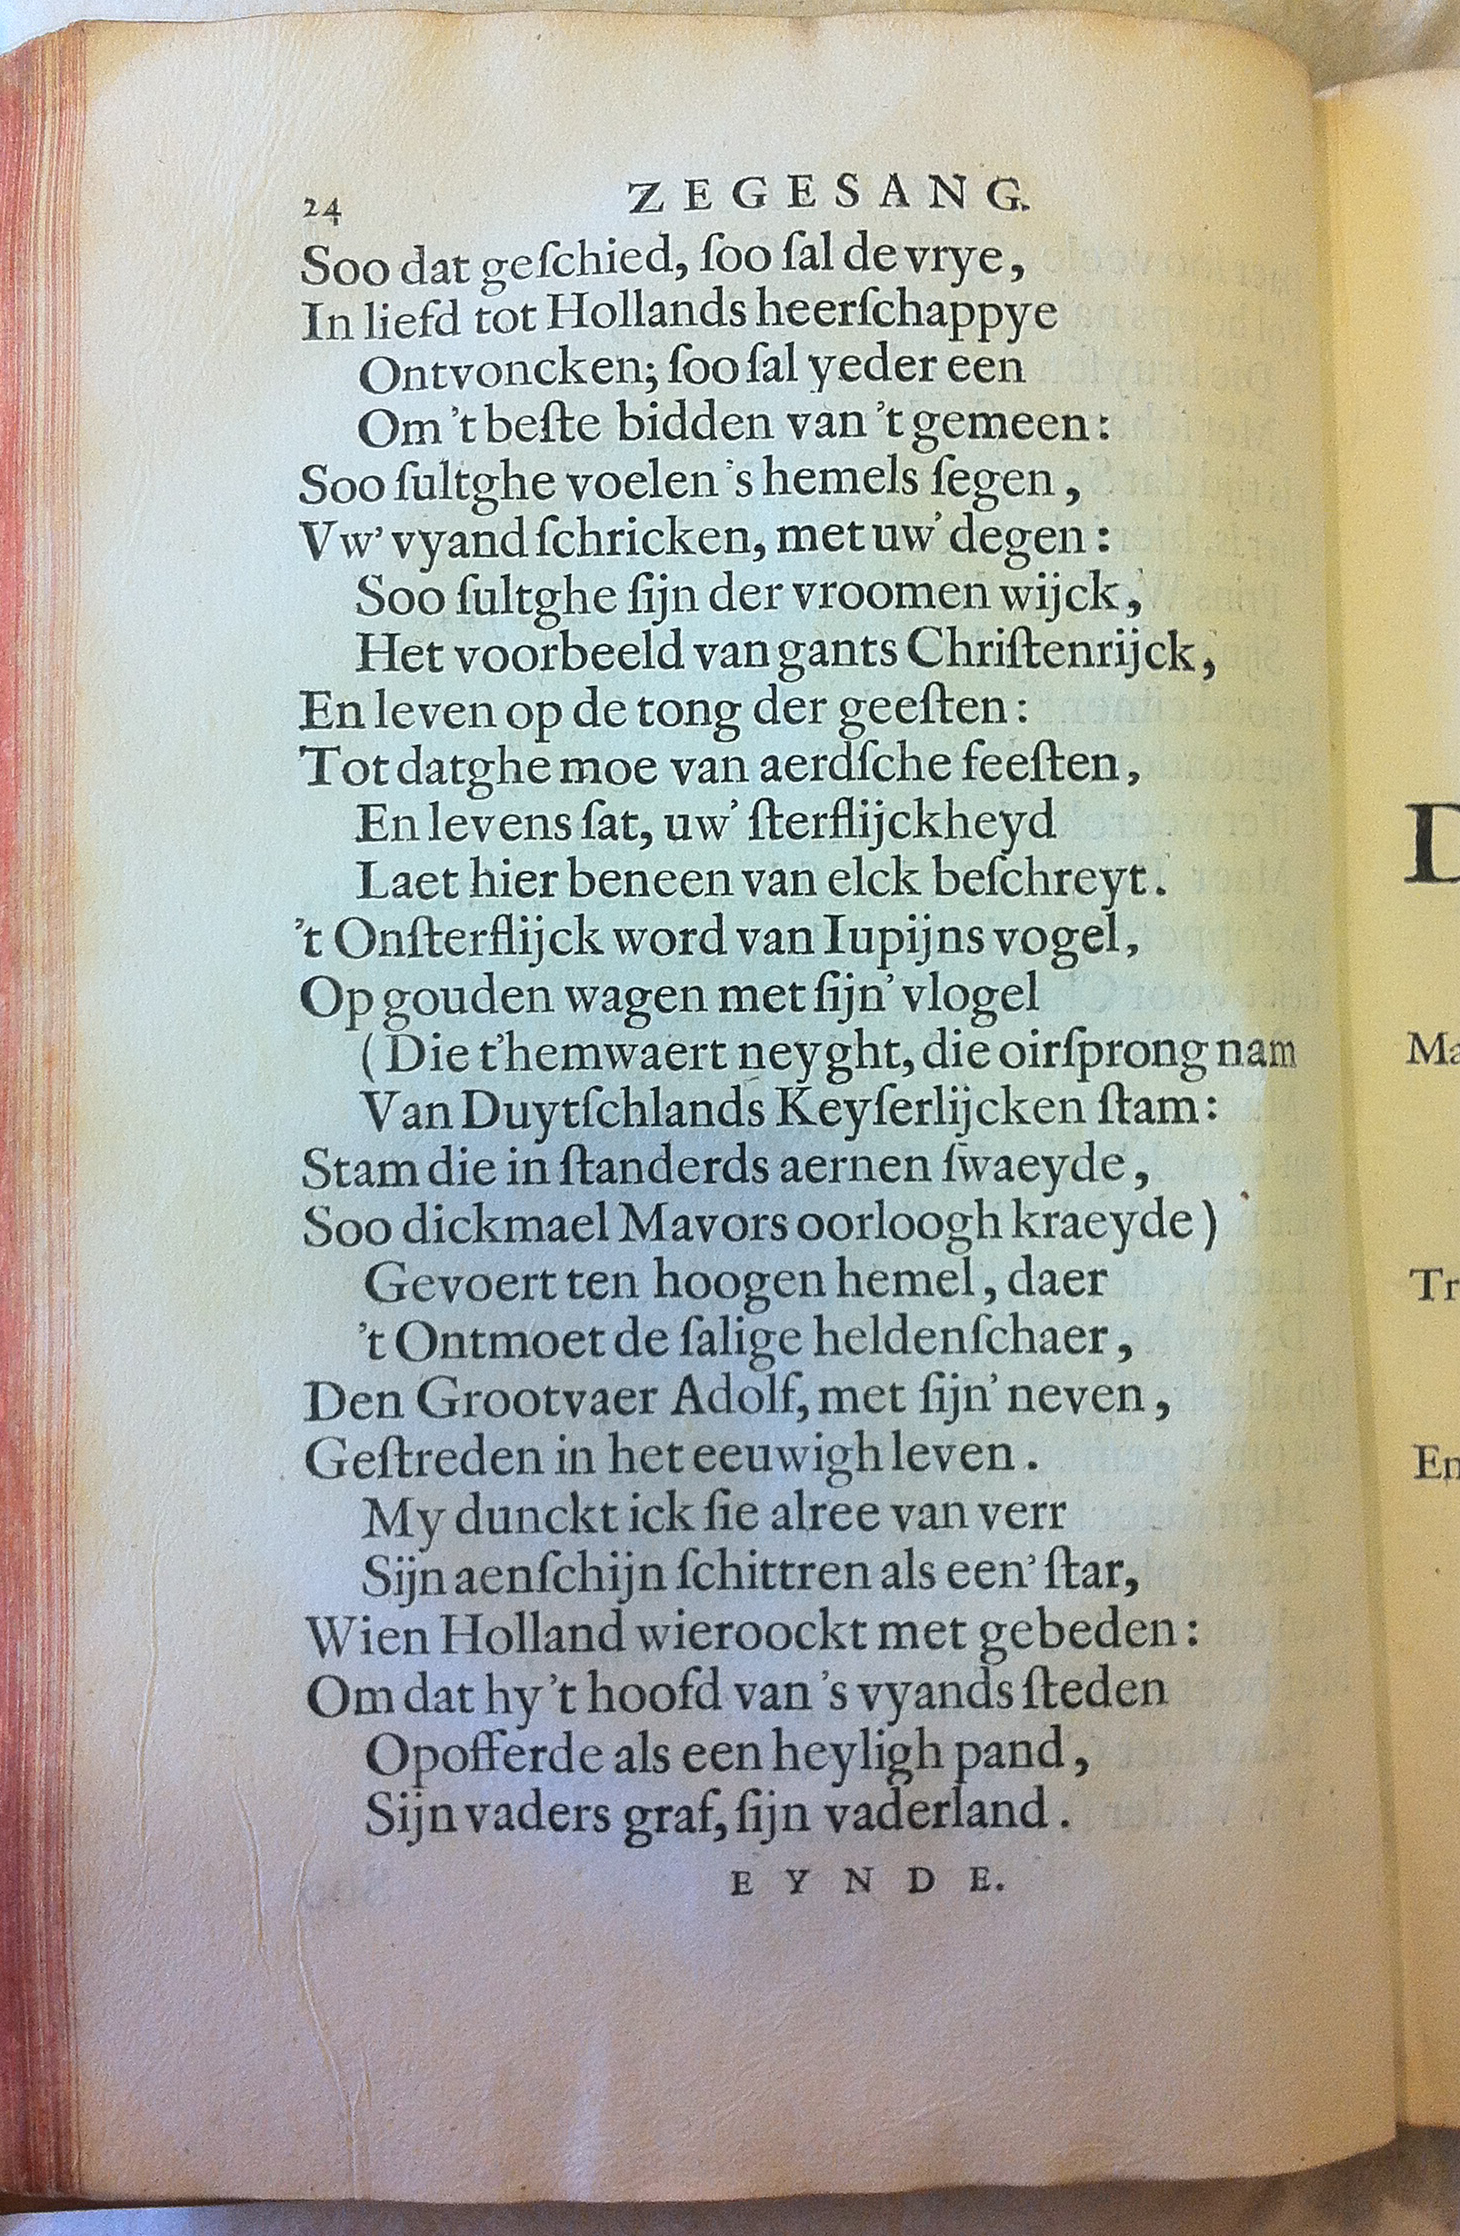 24 ZEGESANG.
Soo dat geſchied, ſoo ſal de vrye,
In liefd tot Hollands heerſchappye
Ontvoncken; ſoo ſal yeder een
Om 't beſte bidden van 't gemeen:
Soo ſultghe voelen 's hemels ſegen,
Vw' vyand ſchricken, met uw' degen:
Soo ſultghe ſijn der vroomen wijck,
Het voorbeeld van gants Chriſtenrijck,
En leven op de tong der geeſten:
Tot datghe moe van aerdſche feeſten,
En levens ſat, uw' ſterflijckheyd
Laet hier beneen van elck beſchreyt.
't Onſterflijck word van Iupijns vogel,
Op gouden wagen met ſijn' vlogel
(Die t'hemwaert neyght, die oirſprong nam
Van Duytſchlands Keyſerlijcken ſtam:
Stam die in ſtanderds aernen ſwaeyde,
Soo dickmael Mavors oorloogh kraeyde)
Gevoert ten hoogen hemel, daer
't Ontmoet de ſalige heldenſchaer,
Den Grootvaer Adolf, met ſijn' neven,
Geſtreden in het eeuwigh leven.
My dunckt ick ſie alree van verr
Sijn aenſchijn ſchittren als een' ſtar,
Wien Holland wieroockt met gebeden:
Om dat hy 't hoofd van 's vyands ſteden
Opofferde als een heyligh pand,
Sijn vaders graf, ſijn vaderland.
EYNDE.
D
Ma
Tr
En